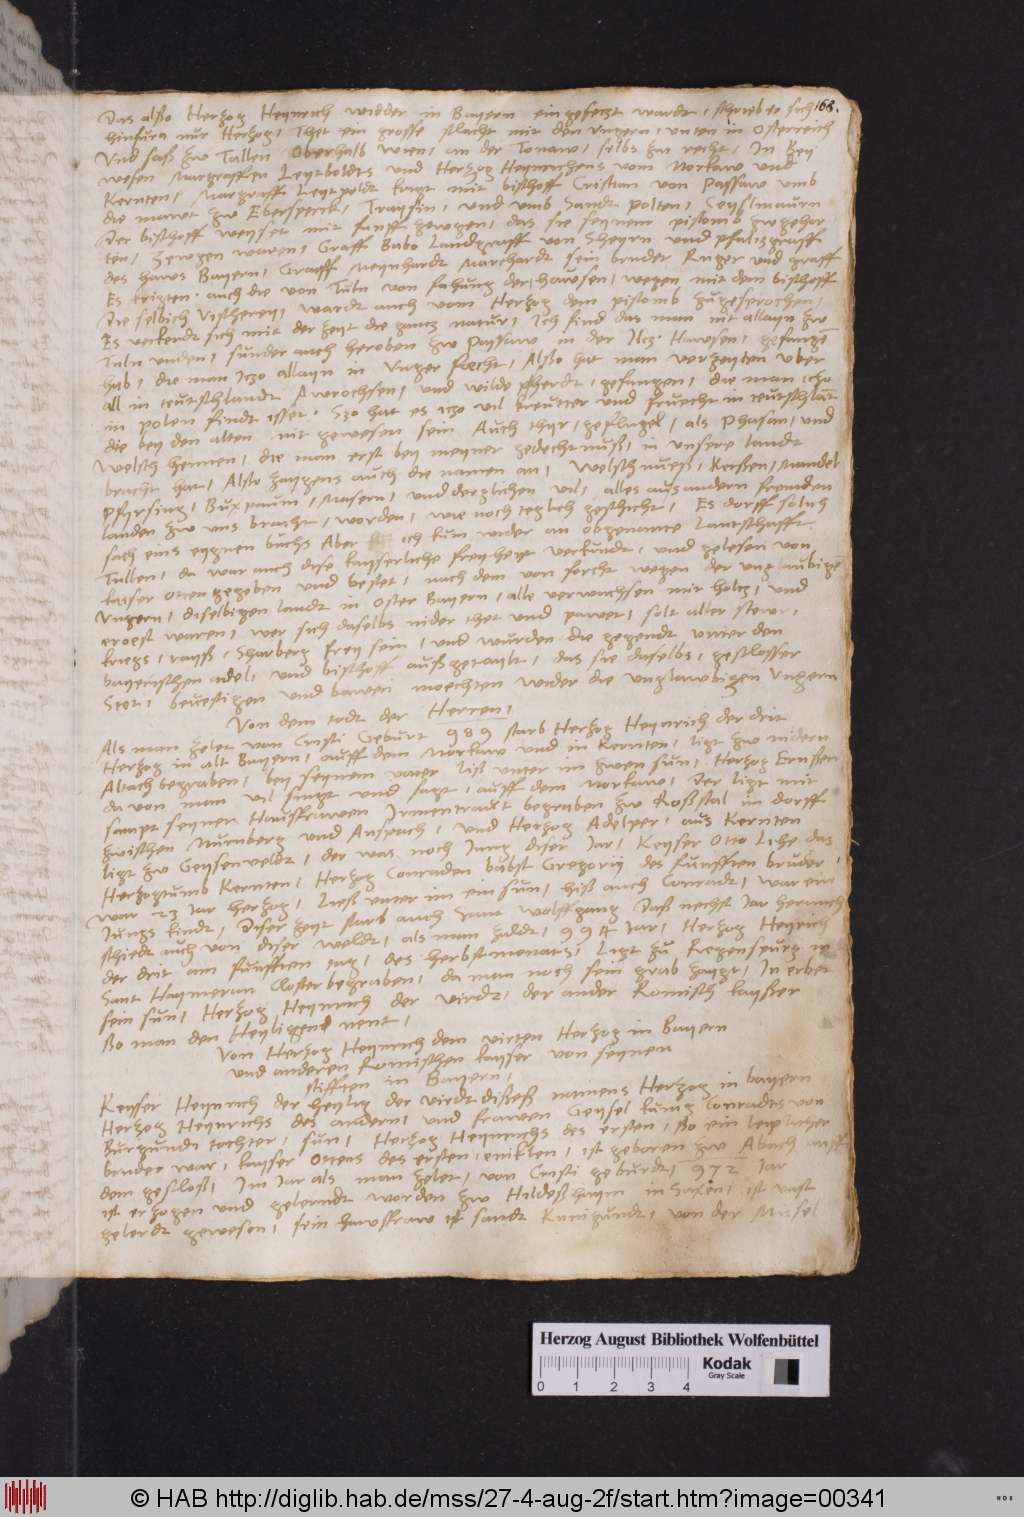 168.
Das alßo Herzog Heynrich widder in Bayern eingesetzt wardt, schrieb er sich
hinfura nur Herzog, Thet ein grosse slacht mit den Vngern, vnten in Osterreich
Vnd saß zw Tullen Oberhalb wien, an der Tonaw, selbs zw recht, In bey
wesen Margraffen Leytboldts vnd Herzog Heynrichens vom Norkaw vnd
Kernten, Margraff Leytpoldt kriegt mit bischoff Cristian von Passaw vmb
die mawt zw Eberspeeck, Traysin, vnd vmb Sandt polten, Ceyslmaurn
Der bischoff weyset mit funff zewgen, das sie seynem pistomb zwgehor
ten, Zewgen waren, Graff Babo Landgraff von Sheyrn vnd pfaltzgraff
des haws Bayern, Graff Meynhardt Marchardt sein bruder Ruger vnd graff
Es krigten auch die von Tuln von fahung der hausen, wegen mit dem bischoff
Die selbich Vischerey, wardt auch vom Herzog dem pistomb zugesprochen,
Es verkerdt sich mit der zeyt die gancz natur, Ich find das man nit allayn zw
Tuln vnden, sunder auch heroben zw Passaw in der Iltz Hawsen, gefangen
hab, die man Itzo allayn in Vnger facht, Alßo hat man vorzeyten vber
all in teutschlandt Awrochsen, vnd wilde pherdt, gefangen, die man itzo
in polen findt isset. Szo hat es itzo vil kreutter vnd fruecht in teutschlandt
die bey den alten nit gewesen sein Auch thyr, geflugel, als Phasan, vnd
Welsch hennen, die man erst bey meyner gedechtnuß, in vnsere landt
bracht hat, Alßo zaygens auch die namen an, Welschnueß, kerßen, Mandel
pfyrsing, Buxpaum, Masern, vnd derglichen vil, alles aus andern fremden
landen zw vns bracht, worden, wie noch teglich geschicht, Es dorff solich
sach eins eygnen buchs Aber ich kum wider an obgenante Lantschafft
Tullen, da war auch dise kayserliche freyheyt verkundt, vnd gelesen von
kaiser Otten gegeben vnd bestet, nach dem von forcht wegen der vnglaubigen
Vngern, diselbigen landt in Oster Bayern, alle verwachsen mit holtz, vnd
eroeßt waren, wer sich daselbs nider thet vnd pawet, solt aller stewr,
kriegs, rayß, Sharberg frey sein, vnd wurden die gegendt vnter den
bayerischen adel, vnd bischoff außgetaylt, das sie daselbs, geschlosser
Stet, beuestigen vnd bawen moechten wider die vnglawbigen Vngern
Von dem todt der Herren,
Als man zelet von Cristi Geburt 989 starb Herzog Heynrich der drit
Herzog in alt Bayern, auff dem Norkaw vnd in Kernten, ligt zw nidern
Altach begraben, bey seynem vater liß vnter im zwen sun, Herzog Ernsten
da von man vil singt vnd sagt, auff dem Norkaw, der ligt mit
sampt seyner Hausfrawen Irmentraudt begraben zw Roßstal im dorff
zwischen Nurnberg vnd Anspach, vnd Herzog Adelper, aus Kernten
ligt zw Geysenveldt, der was noch Jung diser Jar, Keyser Otto Lihe das
Herzogtumb Kernten, Herzog Conraden babst Gregorij des funfften bruder,
war 23 Jar herzog, Ließ vnter im ein sun, hiß auch Conradt, war ein
Jungs kindt, Diser zeyt starb auch Sant wolffgang Daß nechst Jar hernach
schiedt auch von diser weldt, als man zaldt, 994 Jar, Herzog Heyrich
der drit am funfften tag, des herbstmonats, Ligt zu Regenspurg in
Sant Haymeran Closter begraben, da man noch sein grab zaygt, In erbet
sein sun, Herzog Heynrich der virdt, der ander Romisch kayßer
ßo man den Heyligend nent,
Von Herzog Heynrich dem virten Herzog in Bayern
vnd anderen Romischen kayser von seynen
stifften in Bayern,
Keyser Heynrich der heylig der virdt dißeß namens Herzog in bayern
Herzog Heynrichs des andern, vnd frawen Geysel kunig Conradts von
Burgundi tochter, sun, Herzog Heynrichs des ersten, ßo ein leiplicher
bruder war, kayser Ottens des ersten, eniklen, ist geboren zw Abach auff
dem geschloß, Im Jar als man zelet, von Cristi geburdt, 972 Jar
ist erzogen vnd gelerndt worden zw Hildeßhaym in Saxen, ist vast
gelerdt gewesen, sein hawsfraw ist sandt Kunigundt, von der Musel
Herzog August Bibliothek Wolfenbüttel
Kodak
Gray Scale
0 1 2 3 4
© HAB http://diglib.hab.de/mss/27-4-aug-2f/start.htm?image=00341